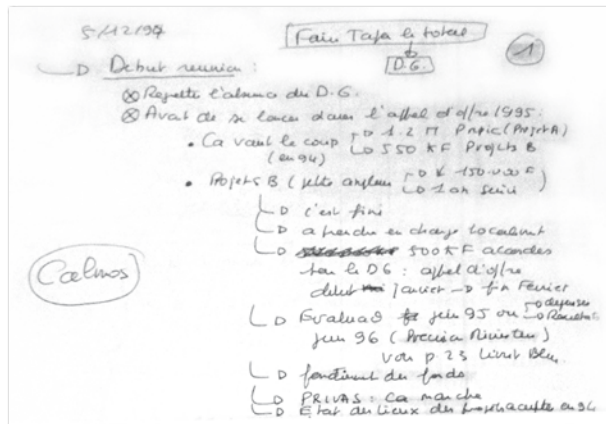 5/12/94
Faire Tapa le total
D.G.
1
Début réunion :
Regrette l'absence du D.G.
Avant de se lancer dans l'appel d'offre 1995 :
• Ça vaut le coup 1.2 M (Projet A)
(en 94) 550 KF Projets B
• Projets B (petite ampleur 150.000 F
1 an )
c'est fini
à prendre en charge localement
500 KF
par le DG : appel d'offre
début janvier → fin Février
Calmos
Evaluat° juin 95 ou dépenses
juin 96 ( ) Résultat
voir p 23 Livret Bleu
des fonds
PRIVAS : Ca marche
Etat des lieux des en 94